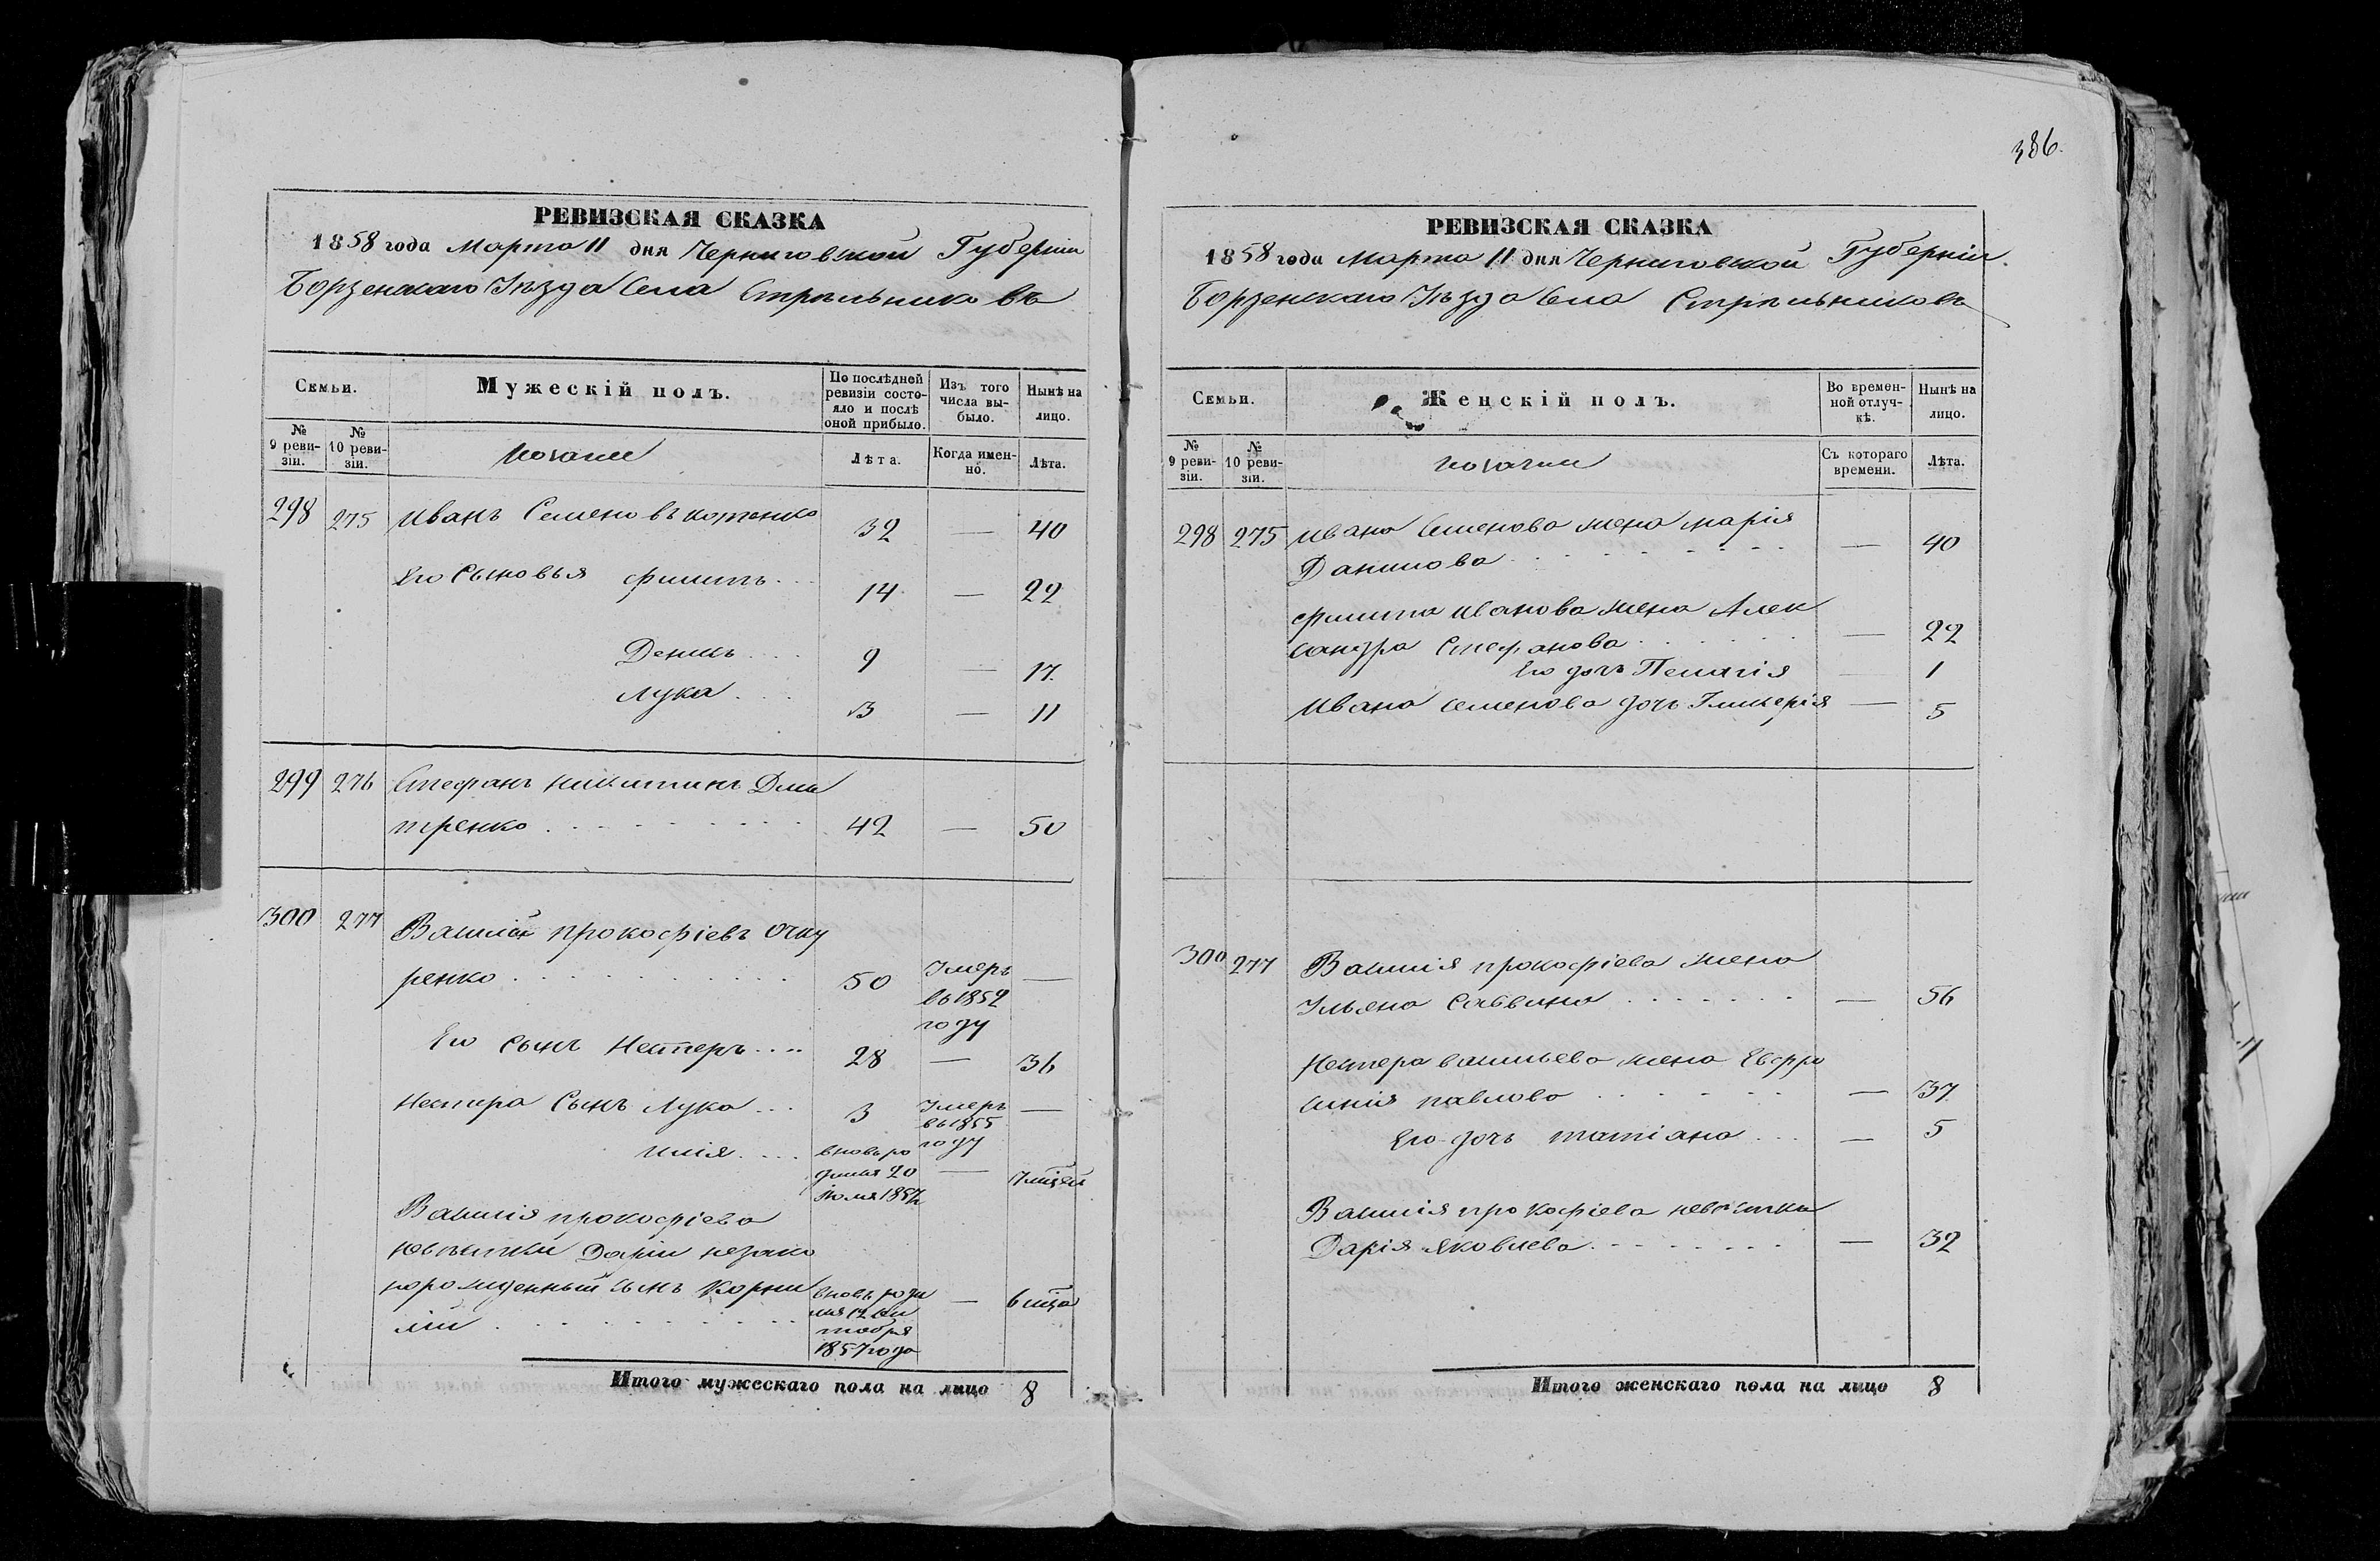 386.
РЕВИЗСКАЯ СКАЗКА
1858 года Марта 11 дня Черниговской Губерніи
Борзенскаго Уѣзда Села Стрѣльниковъ
Семьи.
Мужескій полъ.
По послѣдней ревизіи состояло и послѣ оной прибыло.
Изъ того числа выбыло.
Нынѣ на лицо.
№ 9 ревизіи.
№ 10 ревизіи.
Козаки
Лѣта.
Когда именно.
Лѣта.
298 275 Иванъ Семеновъ Котенко 32 — 40
Его Сыновья Филипъ 14 — 22
Денисъ 9 — 17
Лука 3 — 11
299 276 Стефанъ Никитинъ Дми
тренко 42 — 50
300 277 Василій Прокофіевъ Очку
ренко 50 Умеръ —
въ 1852
году
Его Сынъ Нестеръ 28 — 36
Нестера Сынъ Лука 3 Умеръ —
въ 1855
году
Илія вновь ро
дился 20 —
Іюля 1857
Василія Прокофіева
невѣстки Даріи незако
норожденный сынъ Корни
лій вновь роди —
лся 12 Сен
тября
1857 года
Итого мужескаго пола на лицо 8
РЕВИЗСКАЯ СКАЗКА
1858 года Марта 11 дня Черниговской Губерніи.
Борзенскаго Уѣзда Села Стрѣльниковъ
Семьи.
Женскій полъ.
Во временной отлучкѣ.
Нынѣ на лицо.
№ 9 ревизіи.
№ 10 ревизіи.
Козачки
Съ котораго времени.
Лѣта.
298 275 Ивана Семенова жена Марія
Данилова — 40
Филипа Иванова жена Алек
сандра Стефанова — 22
Его дочь Пелагія — 1
Ивана Семенова дочь Гликерія — 5
300 277 Василія Прокофіева жена
Ульяна Саввина — 56
Нестера Васильева жена Евфро
синія Павлова — 37
Его дочь Татіана — 5
Василія Прокофіева невѣстка
Дарія Яковлева — 32
Итого женскаго пола на лицо 8